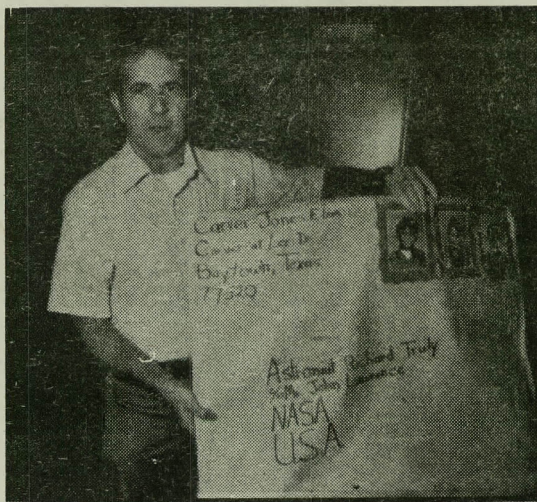 Carver Jones Elem
Lee Dr
Baytown, Texas
77520
Astronaut Richard Truly
% Mr. John Lawrence
NASA
USA